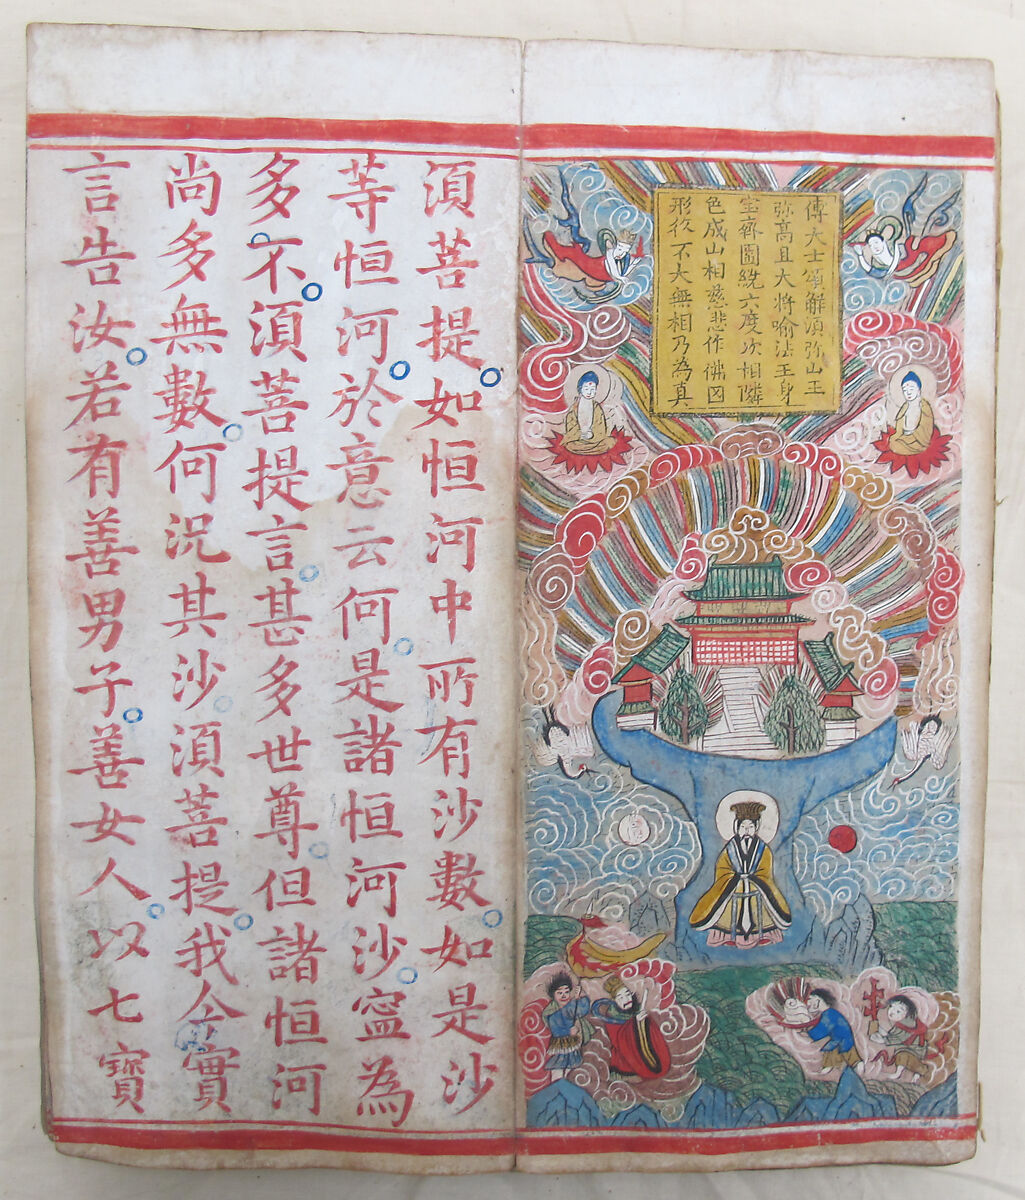 傅大士頌解湏弥山王
弥高且大将喻法王身
宝齊圍繞六度次相隣
色成山相慈悲作佛因
形不大無相乃為真
湏菩提。如恒河中所有沙數。如是沙
等恒河。於意云何。是諸恒河沙。寧為
多。不。湏菩提言。甚多世尊。但諸恒河
尚多無數。何況其沙。湏菩提。我今實
言告汝。若有善男子。善女人。以七寶